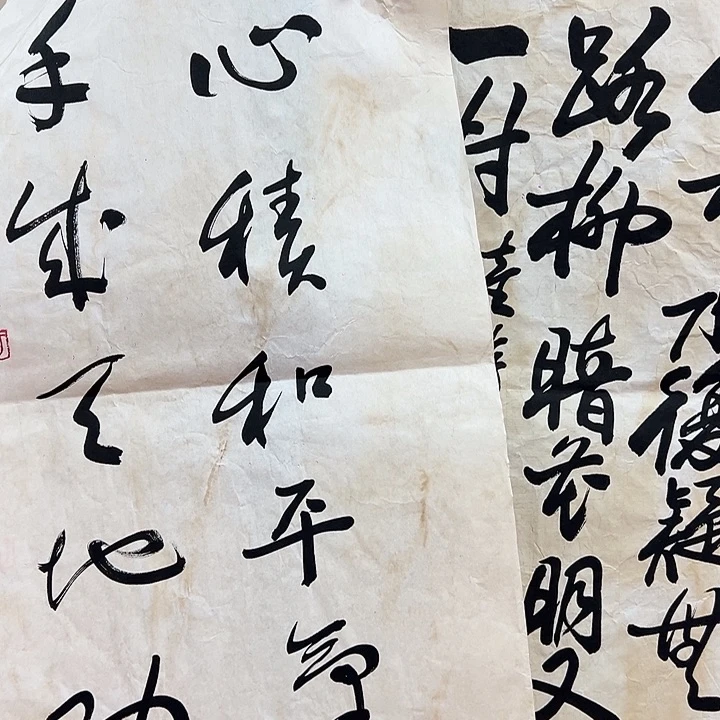 水復疑無
路柳暗花明又
一村
心積和平氣
手成天地